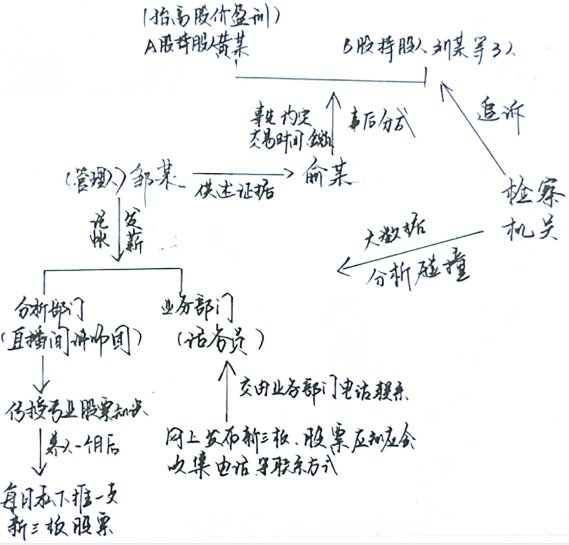 (抬高股价盈利)
A股持股人黄某
B股持股人刘某等3人
事先约定
交易时间金额
事后分成
追诉
(管理人)邹某
供述证据
俞某
检察
机关
记帐
发薪
大数据
分析碰撞
分析部门
(直播间讲师团)
业务部门
(话务员)
传授专业股票知识
交由业务部门电话联系
网上发布新三板、股票应知应会
收集电话等联系方式
一个月后
每日私下推一支
新三板股票